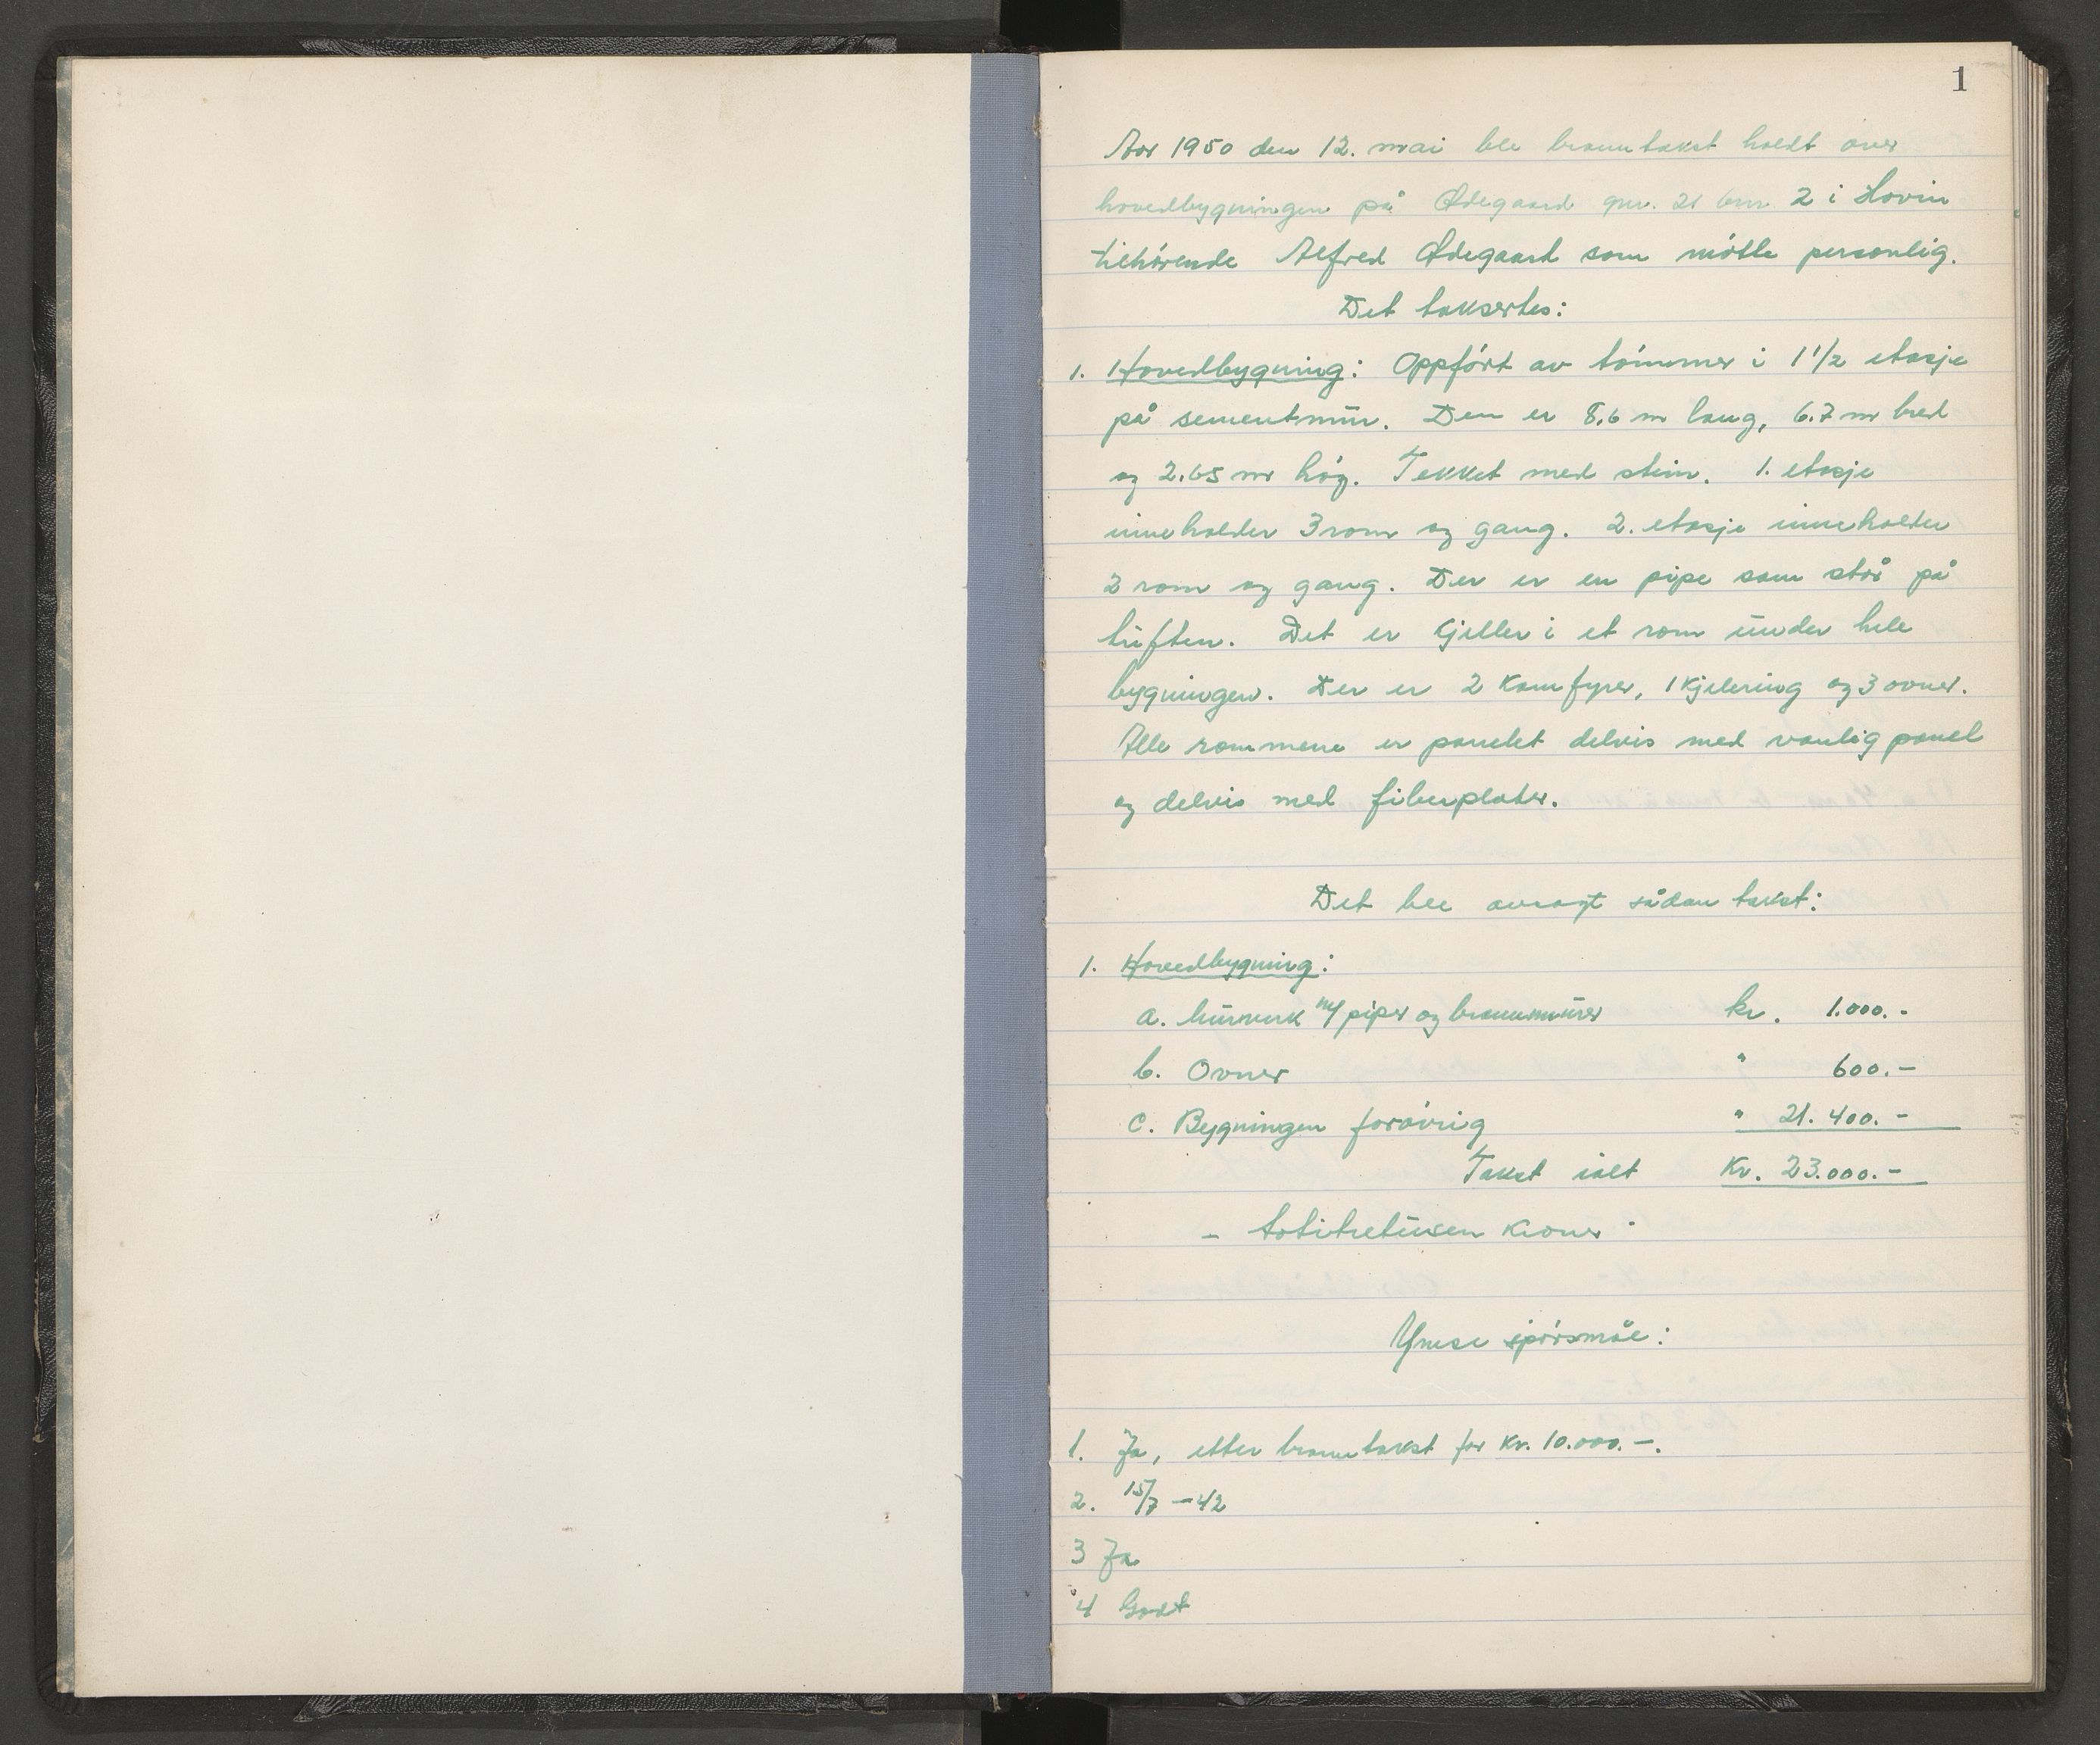 1
Aar 1950 den 12. mai ble branntakst holdt over
hovedbygningen på Ødegaard gnr. 21 bnr. 2 i Hovin
tilhörende Alfred Ødegaard som mötte personlig.
Det taksertes:
1. Hovedbygning: Oppfört av tömmer i 1 1/2 etasje
på sementmur. Den er 8,6 m lang, 6.7 m bred
og 2.65 m höy. Tekket med stein. 1. etasje
inneholder 3 rom og gang. 2. etasje inneholder
2 rom og gang. Der er en pipe som står på
tuften. Det er kjeller i et rom under hele
bygningen. Der er 2 komfyrer, 1 kjelering og 3 ovner.
Alle rommene er panelet delvis med vanlig panel
og delvis med fiberplater.
Det ble avsagt sådan takst:
1. Hovedbygning:
a. Murverk m/ piper og brannmurer kr. 1.000.-
b. Ovner " 600.-
c. Bygningen forövrig " 21.400.-
Takst ialt Kr. 23.000.-
- totitretusen kroner -
Ymse spörsmål:
1. Ja, etter branntakst for kr. 10.000.-.
2. 15/7 - 42
3 Ja
4 Godt